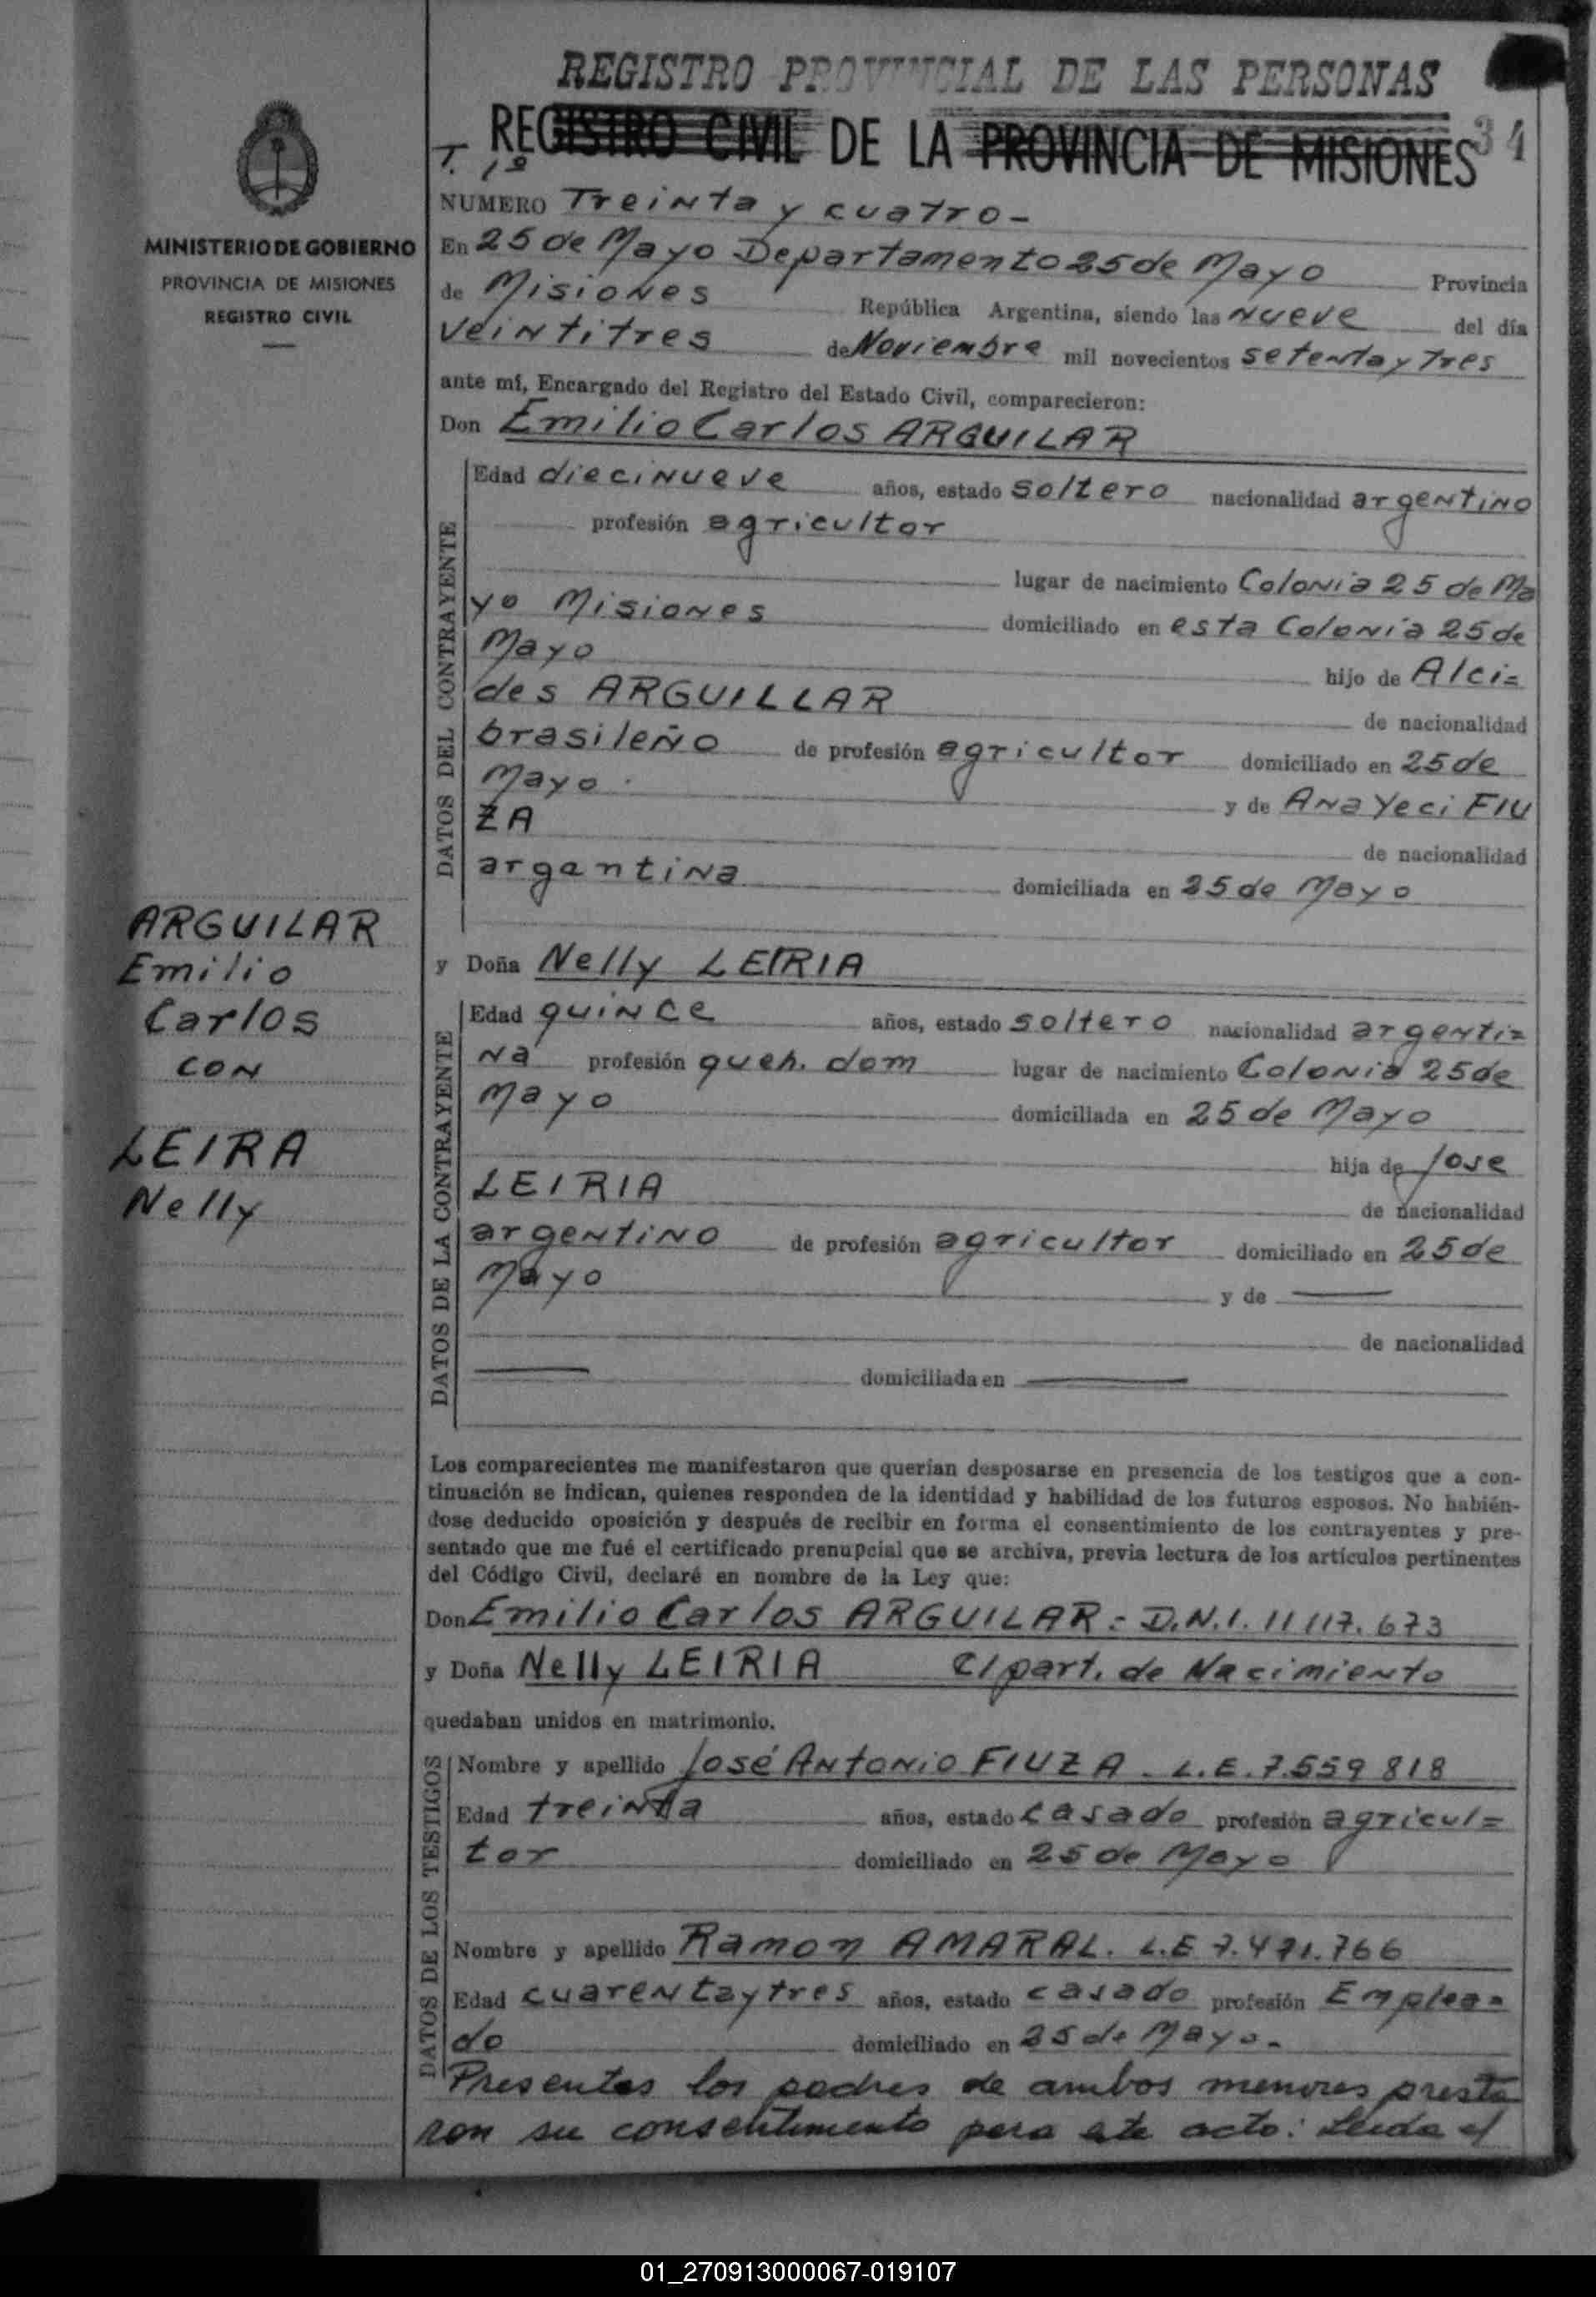 REGISTRO PROVINCIAL DE LAS PERSONAS
REGISTRO CIVIL DE LA PROVINCIA DE MISIONES
34
T. 1º
MINISTERIO DE GOBIERNO
PROVINCIA DE MISIONES
REGISTRO CIVIL
NUMERO Treinta y cuatro-
En 25 de Mayo Departamento 25 de Mayo Provincia
de Misiones República Argentina, siendo las nueve del día
veintitres de Noviembre mil novecientos setenta y tres
ante mí, Encargado del Registro del Estado Civil, comparecieron:
Don Emilio Carlos ARGUILAR
DATOS DEL CONTRAYENTE
Edad diecinueve años, estado soltero nacionalidad argentino
profesión agricultor
lugar de nacimiento Colonia 25 de Ma
yo Misiones domiciliado en esta Colonia 25 de
Mayo hijo de Alci=
des ARGUILLAR de nacionalidad
brasileño de profesión agricultor domiciliado en 25 de
Mayo. y de Ana Yeci FIU
ZA de nacionalidad
argentina domiciliada en 25 de Mayo
ARGUILAR
Emilio
Carlos
con
LEIRA
Nelly
y Doña Nelly LEIRIA
DATOS DE LA CONTRAYENTE
Edad quince años, estado soltero nacionalidad argenti=
na profesión queh. dom lugar de nacimiento Colonia 25 de
Mayo domiciliada en 25 de Mayo
hija de Jose
LEIRIA de nacionalidad
argentino de profesión agricultor domiciliado en 25 de
Mayo y de —
de nacionalidad
— domiciliada en —
Los comparecientes me manifestaron que querían desposarse en presencia de los testigos que a con-
tinuación se indican, quienes responden de la identidad y habilidad de los futuros esposos. No habién-
dose deducido oposición y después de recibir en forma el consentimiento de los contrayentes y pre-
sentado que me fué el certificado prenupcial que se archiva, previa lectura de los artículos pertinentes
del Código Civil, declaré en nombre de la Ley que:
Don Emilio Carlos ARGUILAR.- D.N.I. 11 117. 673
y Doña Nelly LEIRIA C/part. de Nacimiento
quedaban unidos en matrimonio.
DATOS DE LOS TESTIGOS
Nombre y apellido José Antonio FIUZA - L.E. 7.559 818
Edad treinta años, estado casado profesión agricul=
tor domiciliado en 25 de Mayo
Nombre y apellido Ramon AMARAL. L.E 7.471.766
Edad cuarenta y tres años, estado casado profesión Emplea-
do domiciliado en 25 de Mayo.-
Presentes los padres de ambos menores presta
ron su consentimiento para este acto: Leida el
01_270913000067-019107